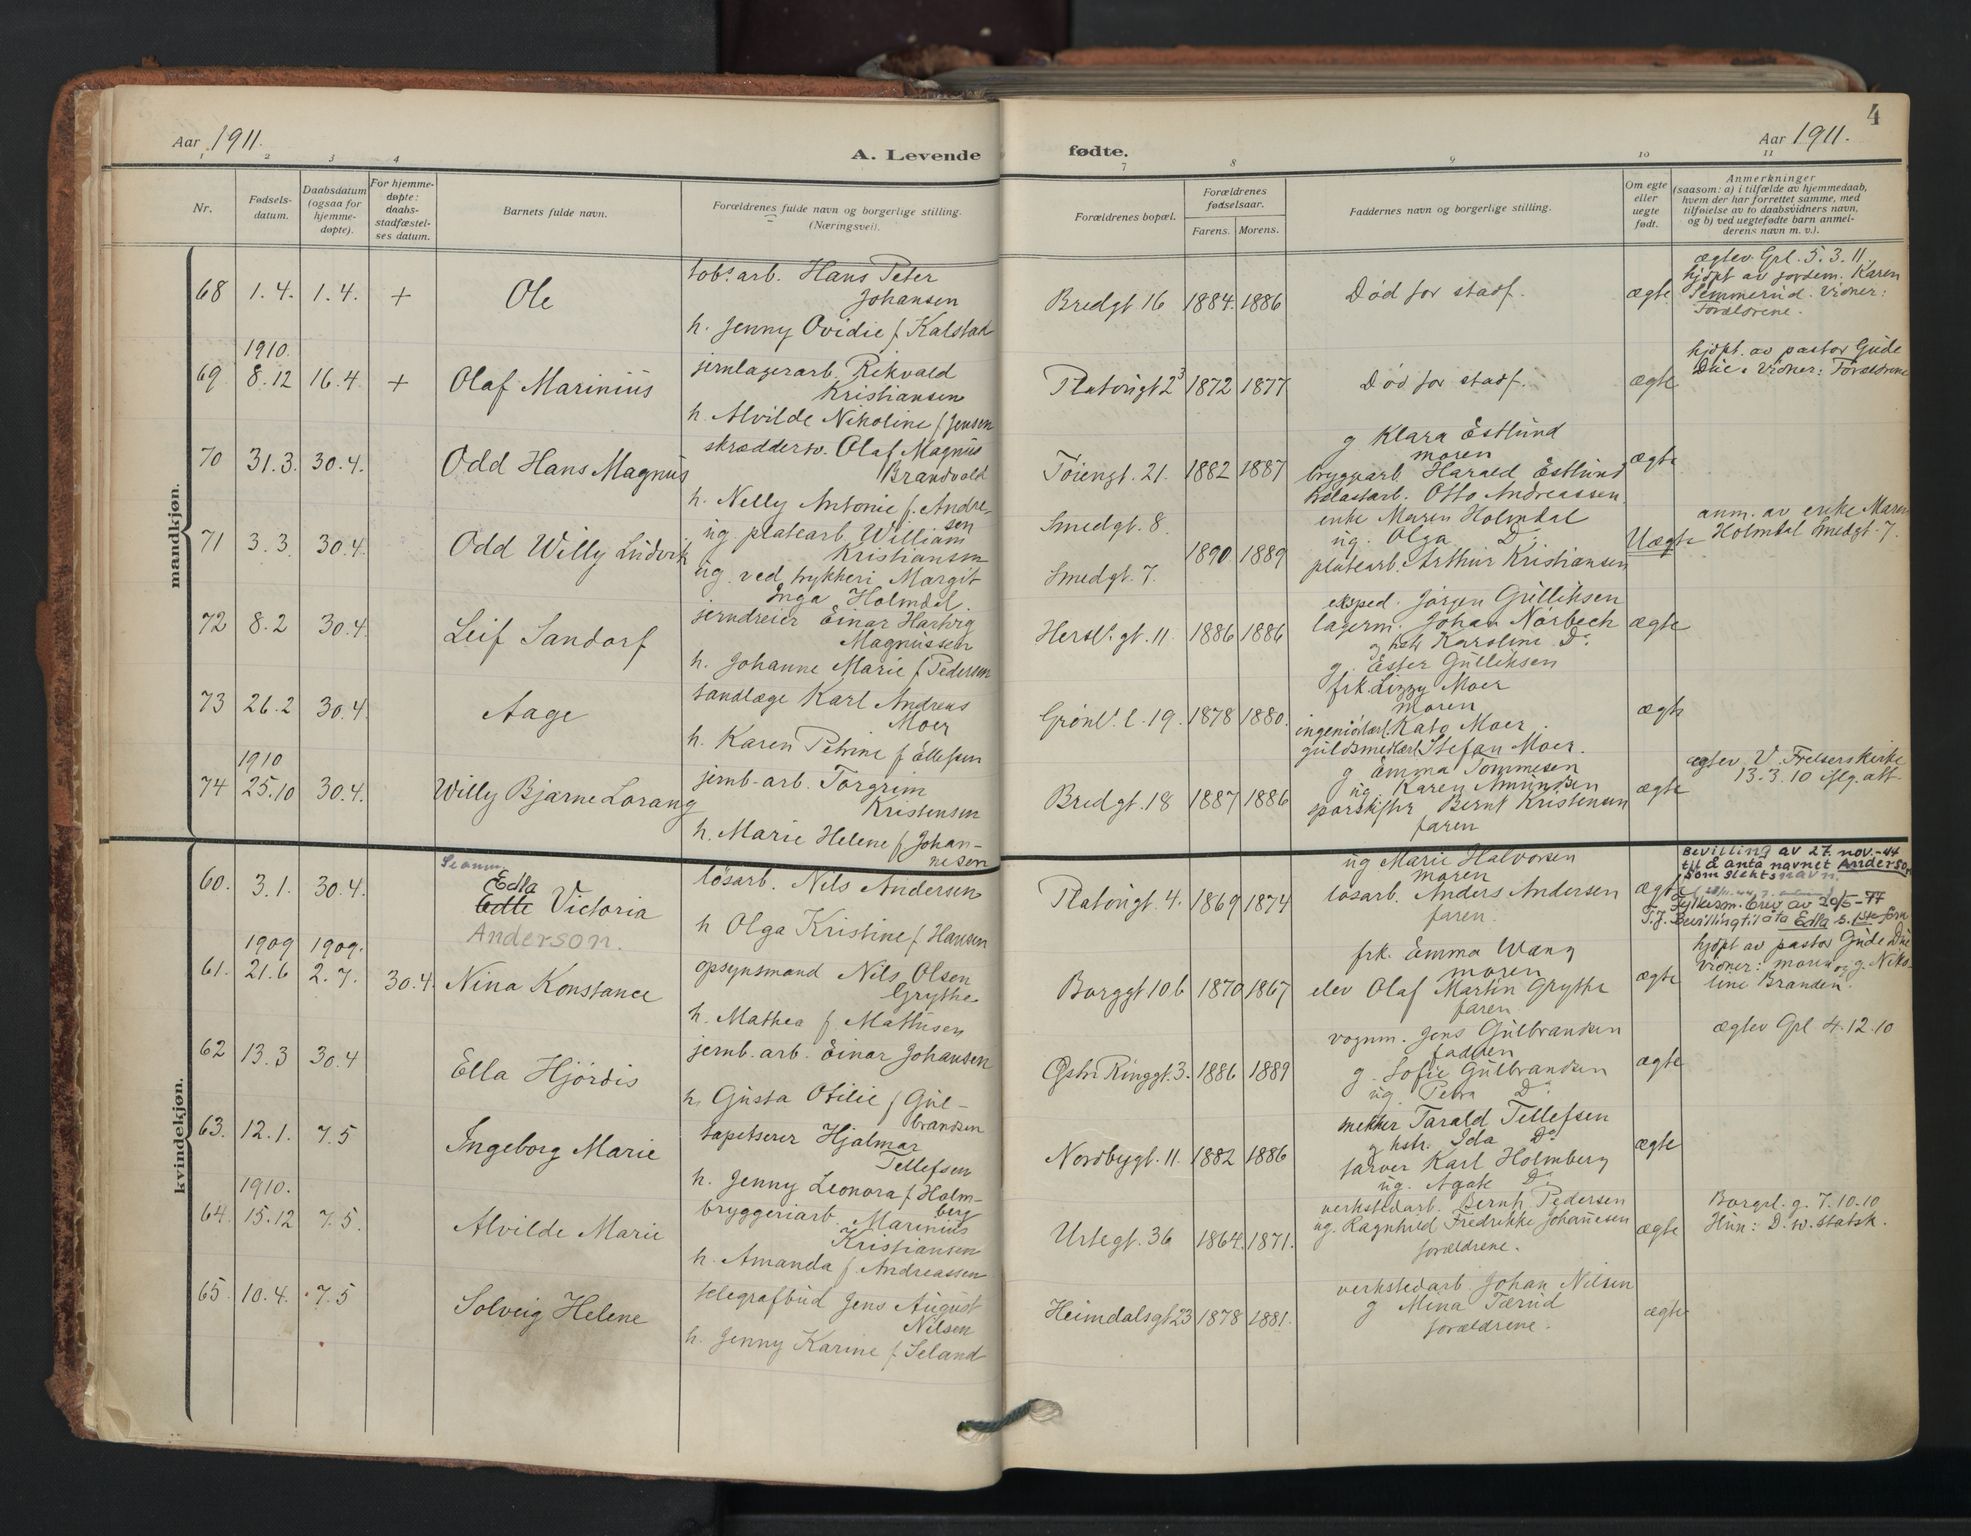 Aar 1911.
A. Levende
fødte.
Aar 1911.
4
1 2 3 4 7 8 9 10 11
Nr.
Fødsels-
datum.
Daabsdatum
(ogsaa for
hjemme-
døpte).
For hjemme-
døpte:
daabs-
stadfæstel-
ses datum.
Barnets fulde navn.
Forældrenes fulde navn og borgerlige stilling.
(Næringsvei).
Forældrenes bopæl.
Forældrenes
fødselsaar.
Farens. Morens.
Faddernes navn og borgerlige stilling.
Om egte
eller
uegte
født.
Anmerkninger
(saasom: a) i tilfælde av hjemmedaab,
hvem der har forrettet samme, med
tilføielse av to daabsvidners navn,
og b) ved uegtefødte barn anmel-
derens navn m. v.).
mandkjøn.
68 1.4. 1.4. + Ole
tobsarb. Hans Peter
Johansen
h. Jenny Ovidie f. Kalstad
Bredgt 16 1884. 1886
Død før stadf.
ægte
ægtev. Grl. 5.3.11.
hjdpt av jordem. Karen
Semmerud. Vidner:
Forældrene.
1910.
69 8.12 16.4. + Olaf Marinius
jernlagerarb. Rikvald
Kristiansen
h. Alvilde Nikoline f. Jensen
Platougt 23 1872 1877
Død før stadf.
ægte
hjdpt. av pastor Gude
Due. Vidner: Forældrene
70 31.3. 30.4. Odd Hans Magnus
skræddersv. Olaf Magnus
Brandvold
h. Nelly Antonie f. Andre-
sen
Tøiengt. 21. 1882 1887
g Klara Estlund
moren
bryggarb. Harald Estlund
Otto Andreassen.
ægte
71 3.3. 30.4. Odd Willy Ludvik
ug. platearb. William
Kristiansen
ug. ved trykkeri Margit
Inga Holmdal.
Smedgt. 8.
Smedgt. 7.
1890 1889
enke Maren Holmdal
ug. Olga Do
platearb. Arthur Kristiansen
Uægte
anm. av enke Maren
Holmdal Smedgt. 7.
72 8.2 30.4. Leif Sandorf
jerndreier Einar Hartvig
Magnussen
h. Johanne Marie f. Pedersen
Hersl. gt. 11. 1886 1886
eksped. Jørgen Gulliksen
lagerm. Johan Nørbech
g hstr Karoline Do
g. Ester Gulliksen
ægte
73 26.2 30.4. Aage
tandlæge Karl Andreas
Moer
h. Karen Petrine f. Ellefsen
Grønl. l. 19. 1878 1880.
frk. Lizzy Moer
moren
Kato Moer.
Stefan Moer.
ægte
1910
74 25.10 30.4. Willy Bjarne Lorang
jernb. arb. Torgrim
Kristensen
h. Marie Helene f. Johan-
nesen
Bredgt. 18 1887 1886
g Emma Tommesen
ug. Karen Amundsen
sporskifter Bernt Kristensen
faren
ægte
ægtev V. Frelsers kirke
13.3.10 iflg. att.
kvindekjøn.
60. 3.1. 30.4.
Edla
Edle Victoria
Anderson.
løsarb. Nils Andersen
h Olga Kristine f. Hansen
Platougt. 4. 1869 1874
ug Marie Halvorsen
moren
løsarb. Anders Andersen
faren.
ægte
Bevilling av 27. nov.-44
til å anta navnet Anderson
som slektsnavn.
Fylkesm. brev av 20/5-44
Bevilling til å ta Edla s. 1ste forn
1909 1909.
61. 21.6 2.7. 30.4. Nina Konstance
opsynsmand Nils Olsen
Grythe
h. Mathea f. Mathisen
Borggt 10b 1870 1867
frk. Emma Wang
moren
elev Olaf Martin Grythe
faren.
ægte
hjdpt av pastor Gude Due
vidner: moren og g. Niko-
line Branden.
62 13.3 30.4 Ella Hjørdis
jernb. arb. Einar Johansen
h. Gusta Otilie f. Gul-
brandsen
Østre Ringgt. 3. 1886 1889
vognm. Jens Gulbrandsen
fadren
g. Sofie Gulbrandsen
ug. Petra Do
ægte
ægtev Grl 4.12.10
63. 12.1. 7.5 Ingeborg Marie
tapetserer Hjalmar
Tellefsen
h. Jenny Leonora f. Holm-
berg
Nordbygt. 11. 1882 1886
snekker Tarald Tellefsen
g hstr. Ida Do
farver Karl Holmberg
ug. Agate Do
ægte
1910.
64. 15.12 7.5. Alvilde Marie
bryggeriarb. Marinius
Kristiansen
h. Amanda f. Andreassen
Urtegt. 36 1864. 1871.
verkstedarb. Bernh. Pedersen
ug. Ragnhild Fredrikke Johannesen
forældrene.
ægte
Borgerl. g. 7.10.10
Hun: D. w. statsk.
65. 10.4. 7.5 Solveig Helene
telegrafbud Jens August
Nilsen
h. Jenny Karine f. Seland
Heimdalsgt 23 1878 1881.
verkstedarb Johan Nilsen
g Mina Tærud
forældrene.
ægte